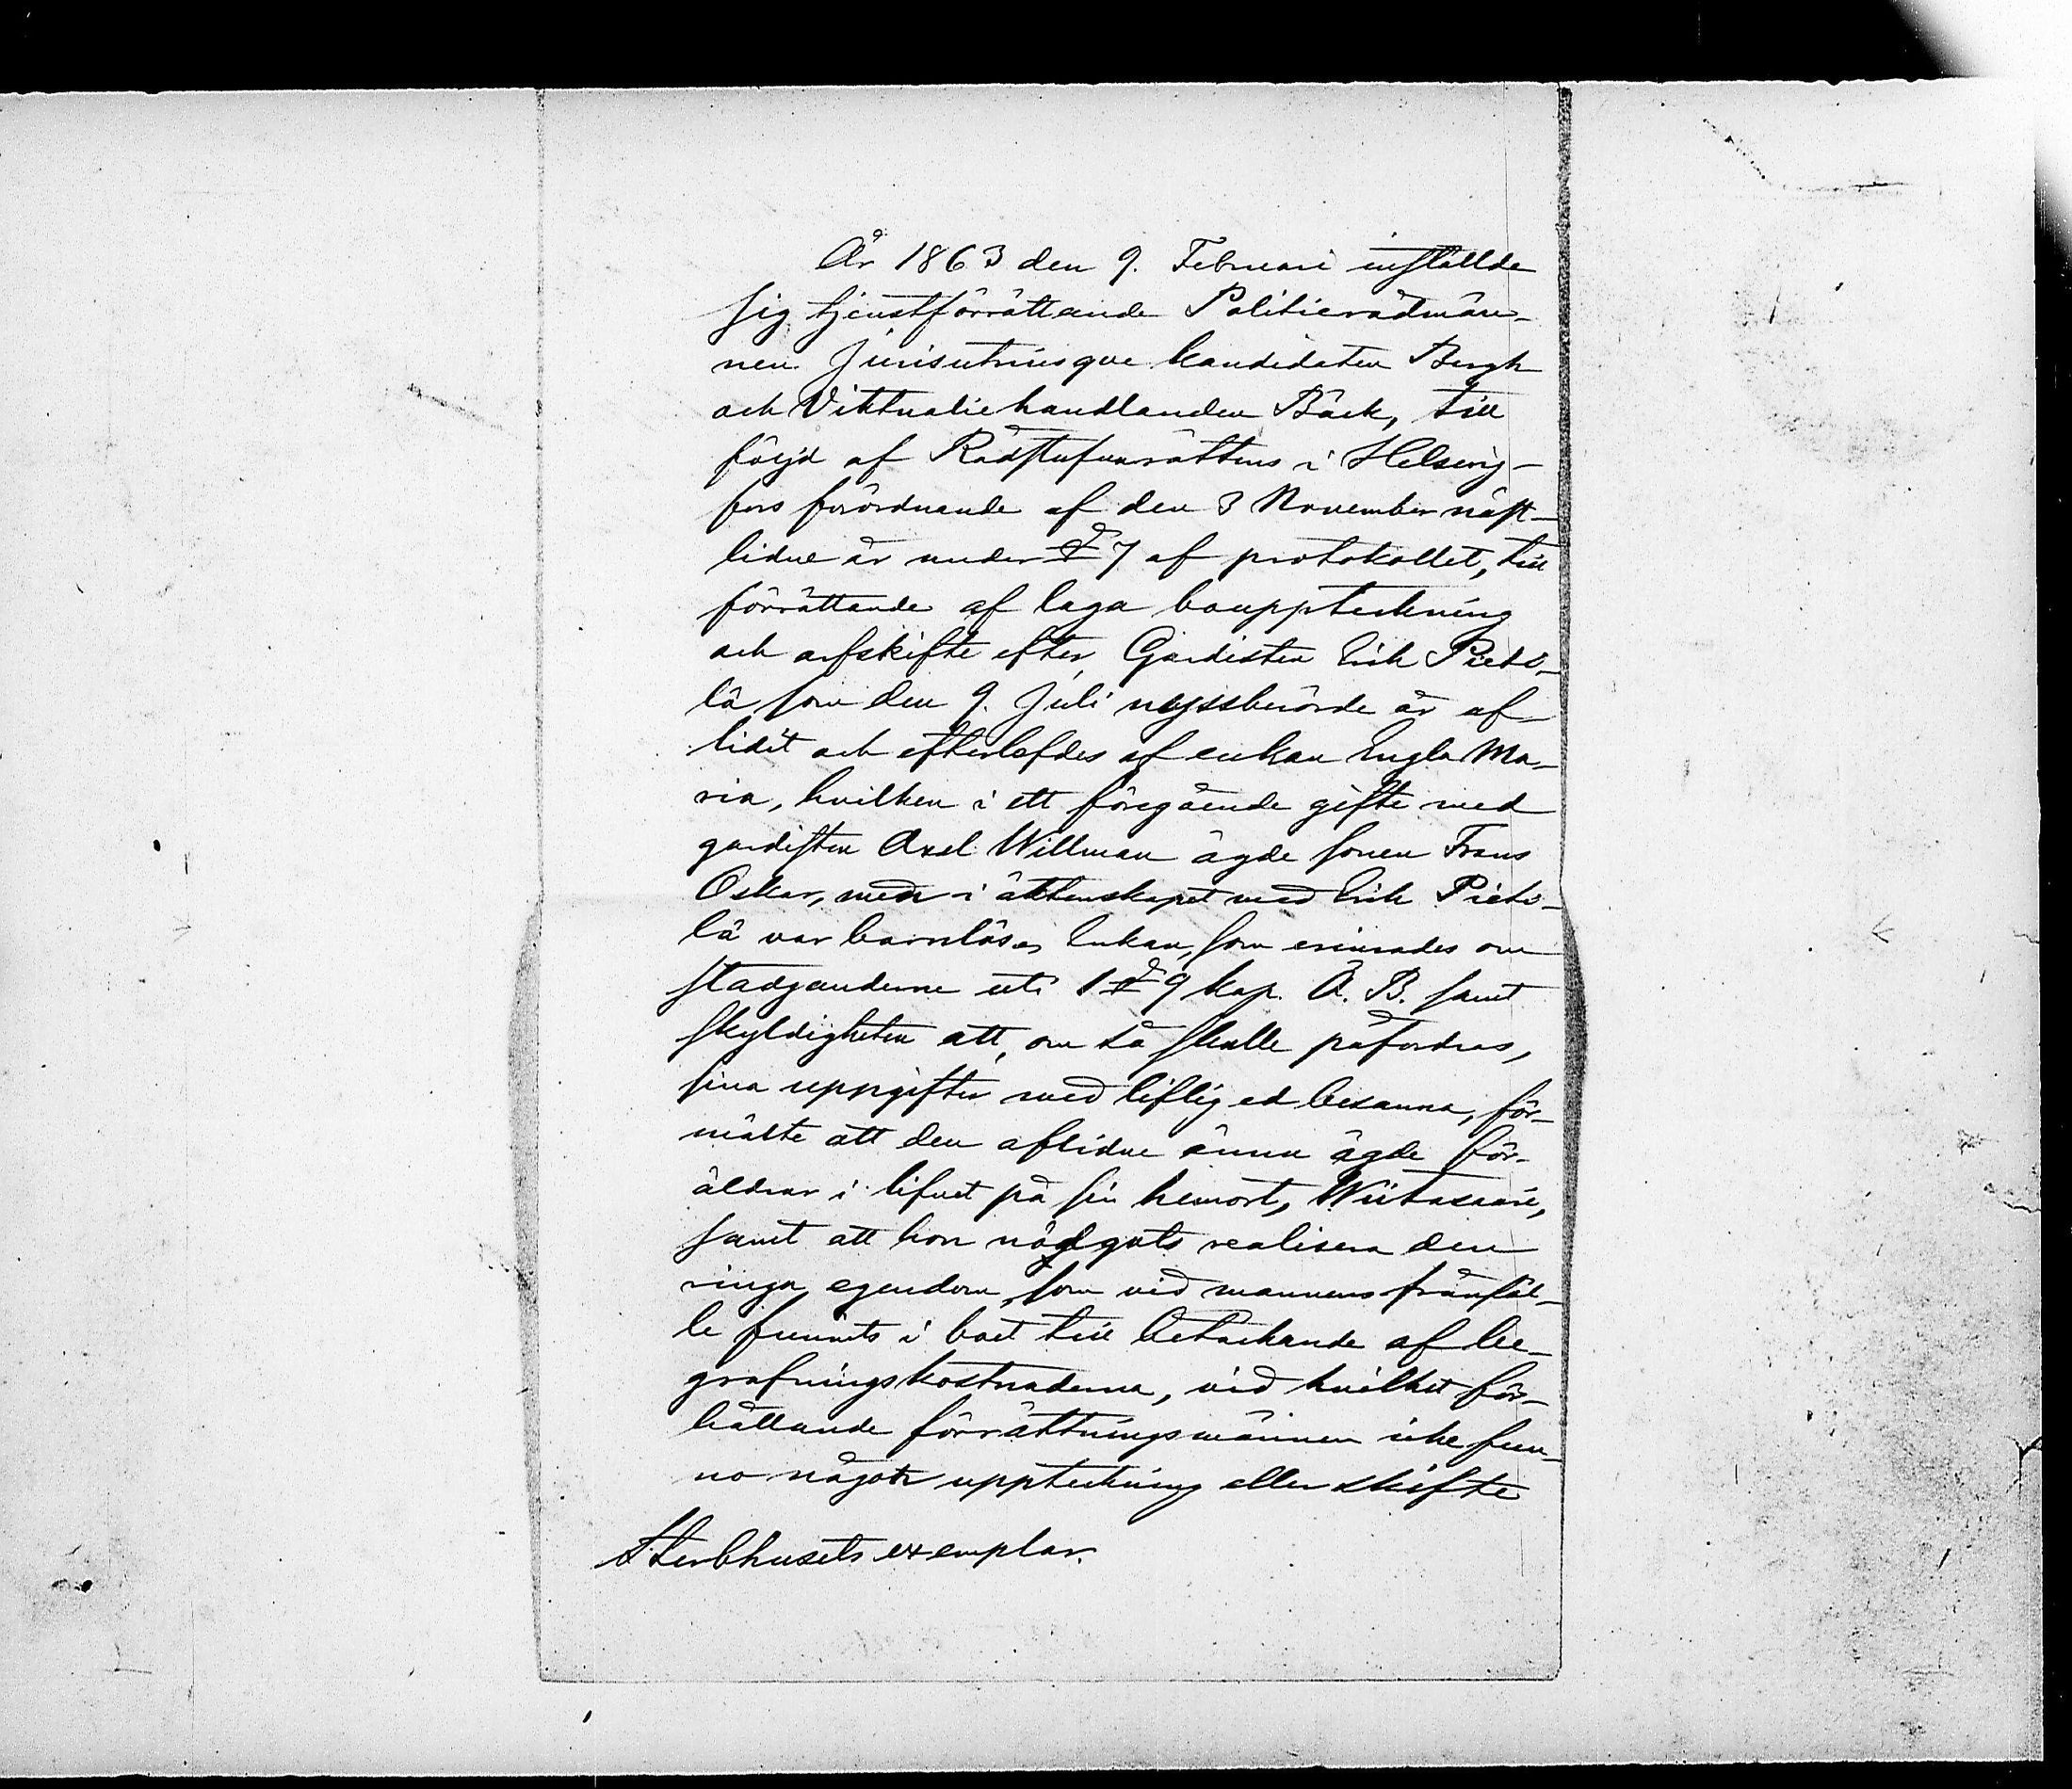 År 1863 den 9. Februari inställde
sig tjenstförrättande Politierådmän-
nen Jurisutriusque kandidaten Bergh
och Viktualiehandlanden Bäck, till
följd af Rådstufvurättens i Helsing-
fors förordnande af den 3 November näst-
lidne år under § 7 af protokollet, till
förrättande af laga bouppteckning
och arfskifte efter Gardisten Erik Pieti-
lä som den 9. Juli nyssberörde år af-
lidit och efterlefdes af enkan Engla Ma-
ria, hvilken i ett föregående gifte med
gardisten Axel Willman ägde sonen Frans
Oskar, men i äktenskapet med Erik Pieti-
lä var barnlös. Enkan, som erinrades om
stadganderne uti 1 § 9 kap. Ä. B. samt
skyldigheten att, om så skulle påfordras,
sina uppgifter med liflig ed besanna, för-
mälte att den aflidne ännu ägde för-
äldrar i lifvet på sin hemort, Wiitasaari,
samt att hon nödgats realisera den
ringa egendom, som vid mannens frånfäl-
le funnits i boet till betäckande af be-
grafningskostnaderna, vid hvilket för-
hållande förrättningsmännen icke fun-
no någon uppteckning eller skifte
Sterbhusets exemplar.